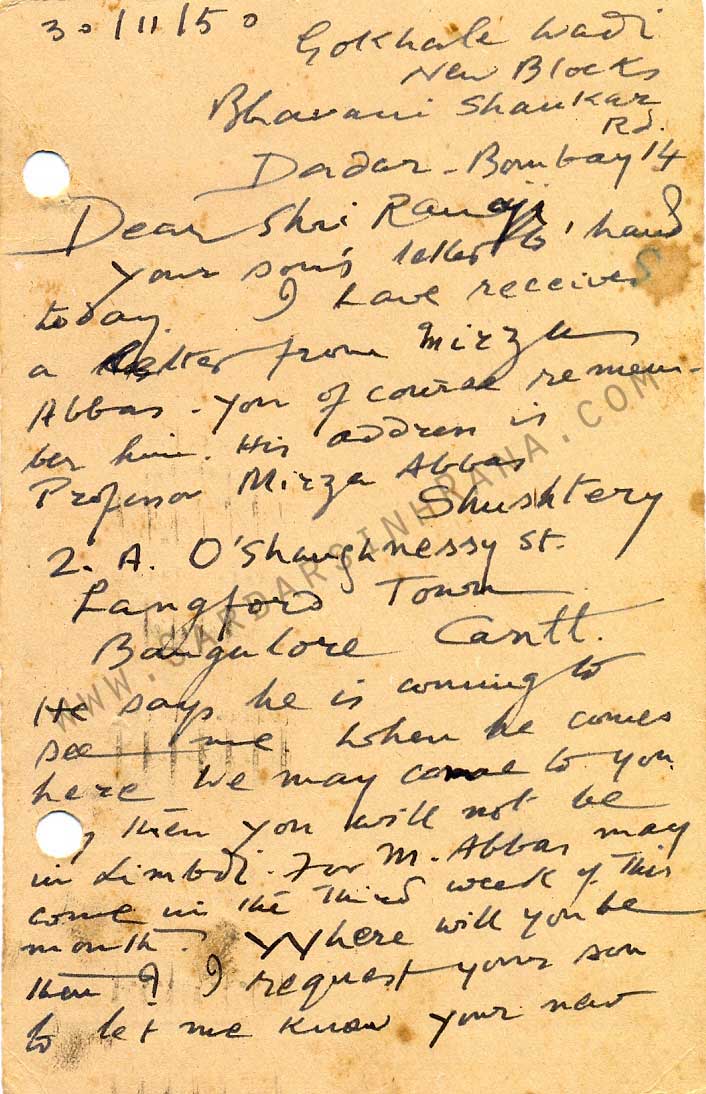 30/11/50
Gokhale Wadi
New Blocks
Bhavani Shankar
Rd.
Dadar - Bombay 14
Dear Shri Ranaji
Your son's letter to hand
today. I have received
a letter from Mirza
Abbas - you of course remem-
ber him. His address is
Professor Mirza Abbas
Shushtery
2. A. O'Shaughnessy St.
Langford Town
Bangalore Cantt.
He says he is coming to
see me when he comes
here we may come to you
then you will not be
in Limbdi. For M. Abbas may
come in the third week of this
month. Where will you be
then? I request your son
to let me know your new
WWW.SARDARSINHRANA.COM